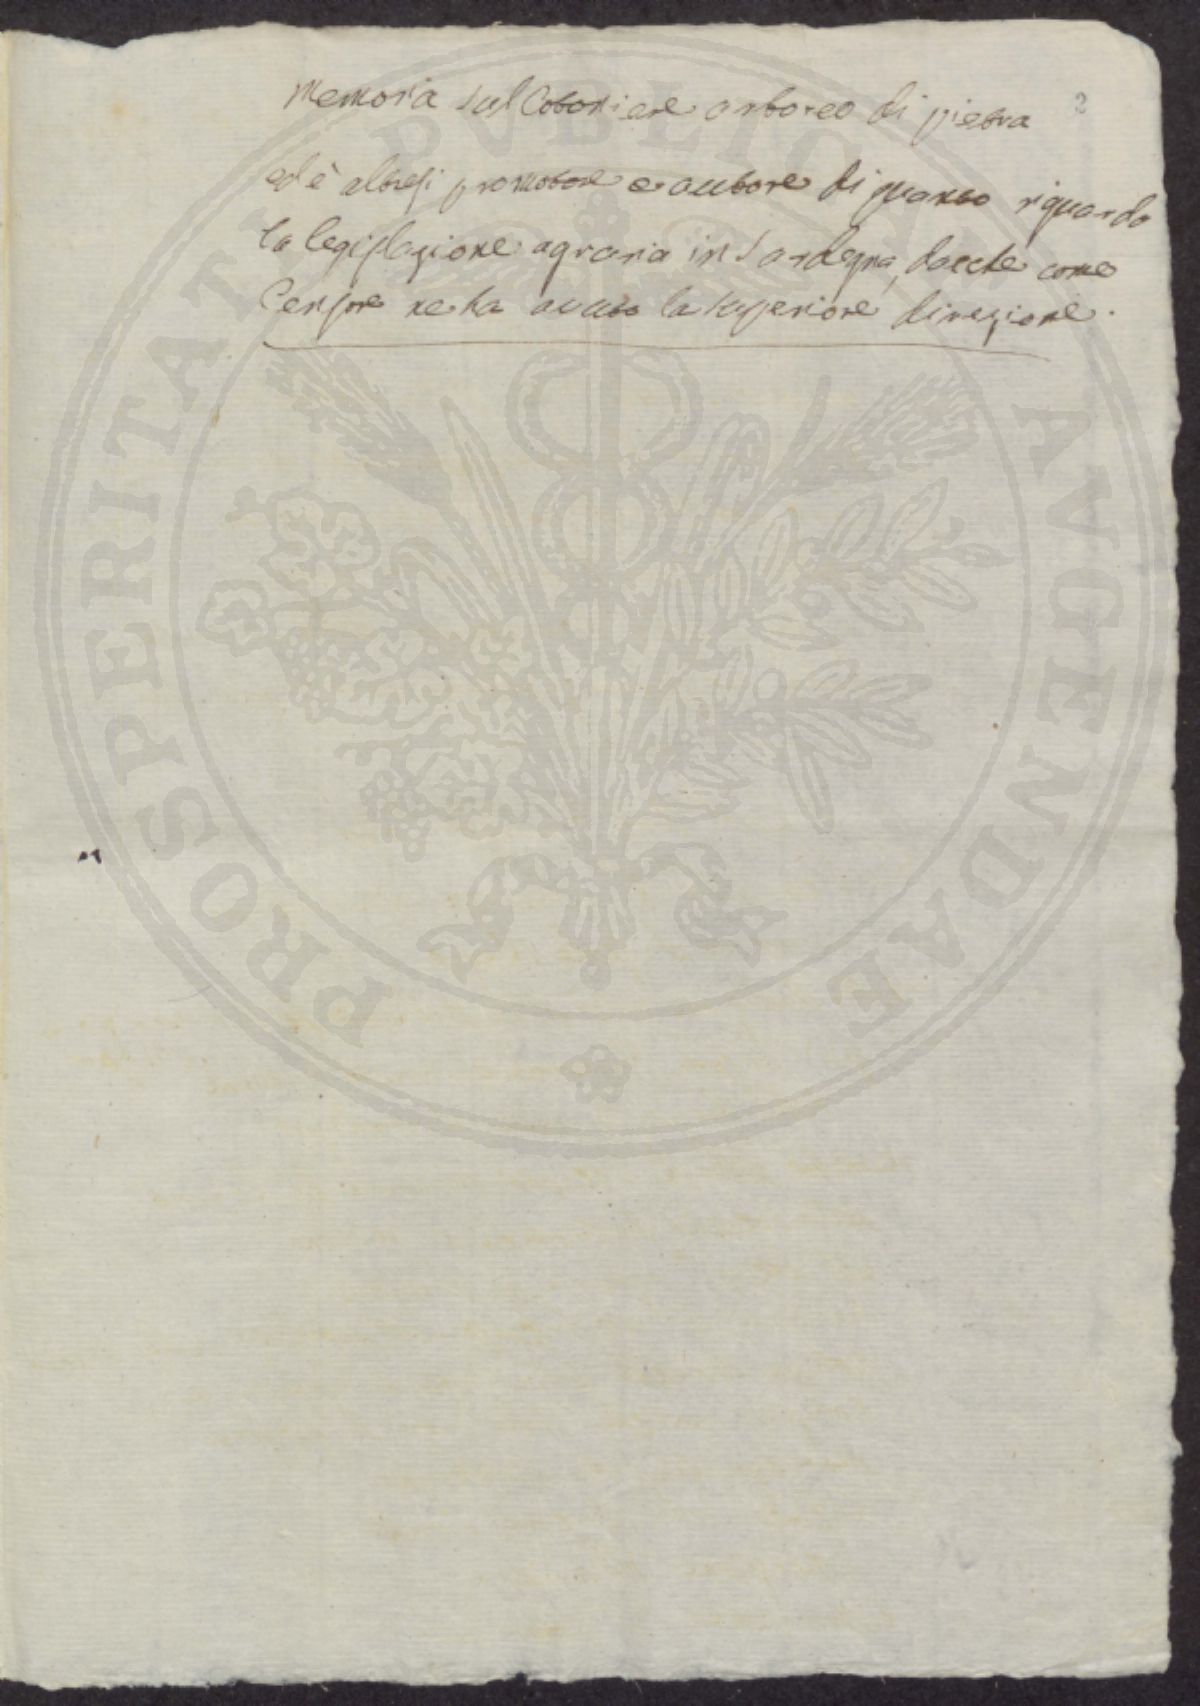 2
Memoria sul Cotoniere arboreo di pietra
ed è altresi promotore e autore di quanto riguarda
la legislazione agraria in Sardegna, dacche come
Censore ne ha avuto la superiore direzione.
PROSPERITATI PVBLICAE AVGENDAE